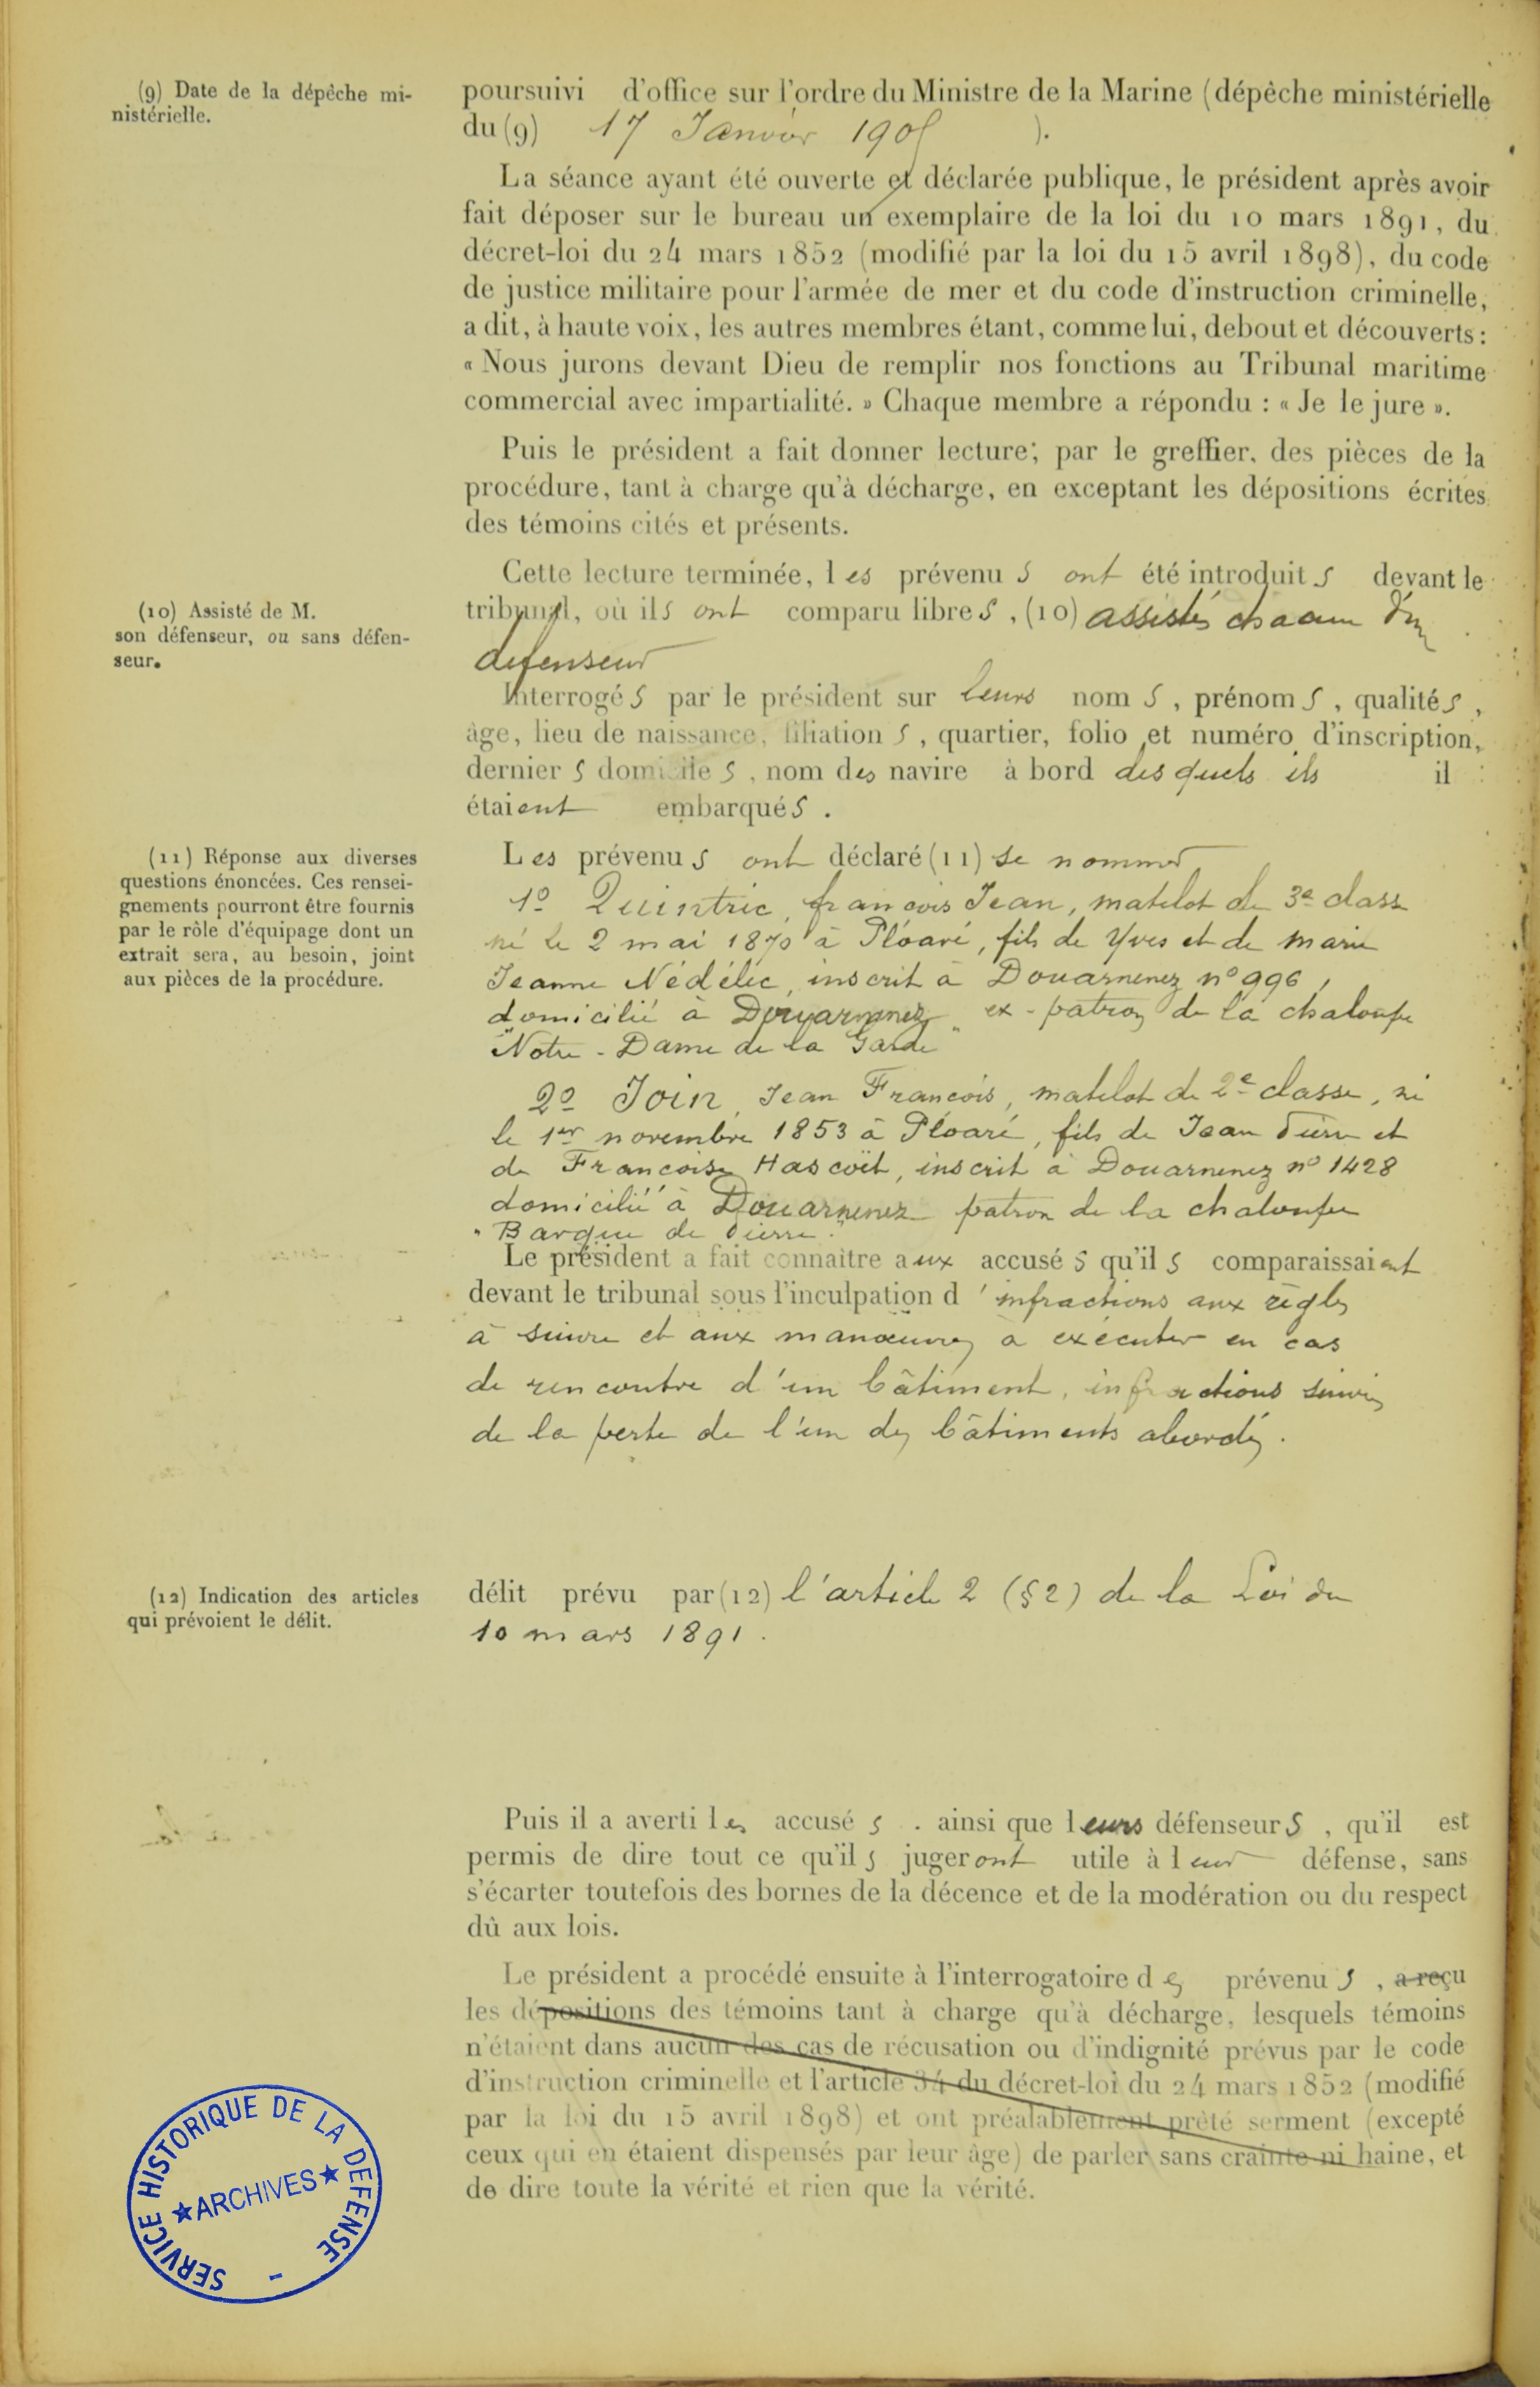 (9) Date de la dépêche mi-
nistérielle.
poursuivi d'office sur l'ordre du Ministre de la Marine (dépêche ministérielle
du (9) 17 Janvier 190 ).
La séance ayant été ouverte et déclarée publique, le président après avoir
fait déposer sur le bureau un exemplaire de la loi du 10 mars 1891, du
décret-loi du 24 mars 1852 (modifié par la loi du 15 avril 1898), du code
de justice militaire pour l'armée de mer et du code d'instruction criminelle,
a dit, à haute voix, les autres membres étant, comme lui, debout et découverts :
« Nous jurons devant Dieu de remplir nos fonctions au Tribunal maritime
commercial avec impartialité. » Chaque membre a répondu : « Je le jure ».
Puis le président a fait donner lecture, par le greffier, des pièces de la
procédure, tant à charge qu'à décharge, en exceptant les dépositions écrites
des témoins cités et présents.
Cette lecture terminée, les prévenus ont été introduits devant le
(10) Assisté de M.
son défenseur, ou sans défen-
seur.
tribunal, où ils ont comparu libres, (10) assistés chacun d'un
defenseur
Interrogés par le président sur leurs noms, prénoms, qualités,
âge, lieu de naissance, filiations, quartier, folio et numéro d'inscription,
derniers domiciles, nom des navire à bord desquels ils il
étaient embarqués.
(11) Réponse aux diverses
questions énoncées. Ces rensei-
gnements pourront être fournis
par le rôle d'équipage dont un
extrait sera, au besoin, joint
aux pièces de la procédure.
Les prévenus ont déclaré (11) se nommer
1º Quintric, françois Jean, matelot de 3e classe
né le 2 mai 1870 à Ploaré, fils de Yves et de marie
Jeanne Nédélec, inscrit à Douarnenez nº 996,
domicilié à Douarnenez, ex-patron de la chaloupe
"Notre-Dame de la Garde"
2º Join, Jean François, matelot de 2e classe, né
le 1er novembre 1853 à Ploaré, fils de Jean Pierre et
de Françoise Hascoët, inscrit à Douarnenez nº 1428
domicilié à Douarnenez patron de la chaloupe
"Barque de Pierre".
Le président a fait connaître aux accusés qu'ils comparaissaient
devant le tribunal sous l'inculpation d'infractions aux règles
à suivre et aux manœuvres à exécuter en cas
de rencontre d'un bâtiment, infractions suivies
de la perte de l'un des bâtiments abordés.
(12) Indication des articles
qui prévoient le délit.
délit prévu par (12) l'article 2 (§2) de la Loi du
10 mars 1891.
Puis il a averti les accusés. ainsi que leurs défenseurs, qu'il est
permis de dire tout ce qu'ils jugeront utile à leur défense, sans
s'écarter toutefois des bornes de la décence et de la modération ou du respect
dû aux lois.
Le président a procédé ensuite à l'interrogatoire des prévenus, a reçu
les dépositions des témoins tant à charge qu'à décharge, lesquels témoins
n'étaient dans aucun des cas de récusation ou d'indignité prévus par le code
d'instruction criminelle et l'article 34 du décret-loi du 24 mars 1852 (modifié
par la loi du 15 avril 1898) et ont préalablement prêté serment (excepté
ceux qui en étaient dispensés par leur âge) de parler sans crainte ni haine, et
de dire toute la vérité et rien que la vérité.
SERVICE HISTORIQUE DE LA DEFENSE -
★ARCHIVES★